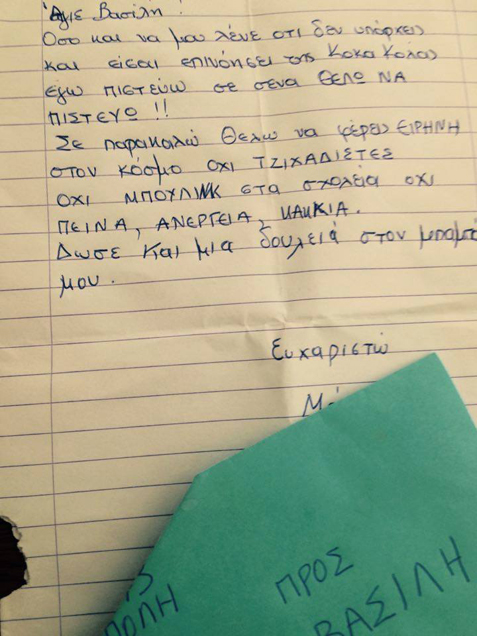 Άγιε Βασίλη!
Οσο και να μου λένε οτι δεν υπάρχεις
και είσαι επινόησει της Κοκα Κολας
εγω πιστευω σε σενα θελω ΝΑ
ΠΙΣΤΕΥΩ !!
Σε παρακαλώ θελω να φέρεις ΕΙΡΗΝΗ
στον κόσμο οχι ΤΖΙΧΑΔΙΣΤΕΣ
ΟΧΙ ΜΠΟΥΛΙΝΚ στα σχολεία οχι
ΠΕΙΝΑ, ΑΝΕΡΓΕΙΑ, ΚΑΚΚΙΑ.
Δωσε και μια δουλειά στον μπαμπά
μου.
Ευχαριστώ
ΠΡΟΣ
ΒΑΣΙΛΗ